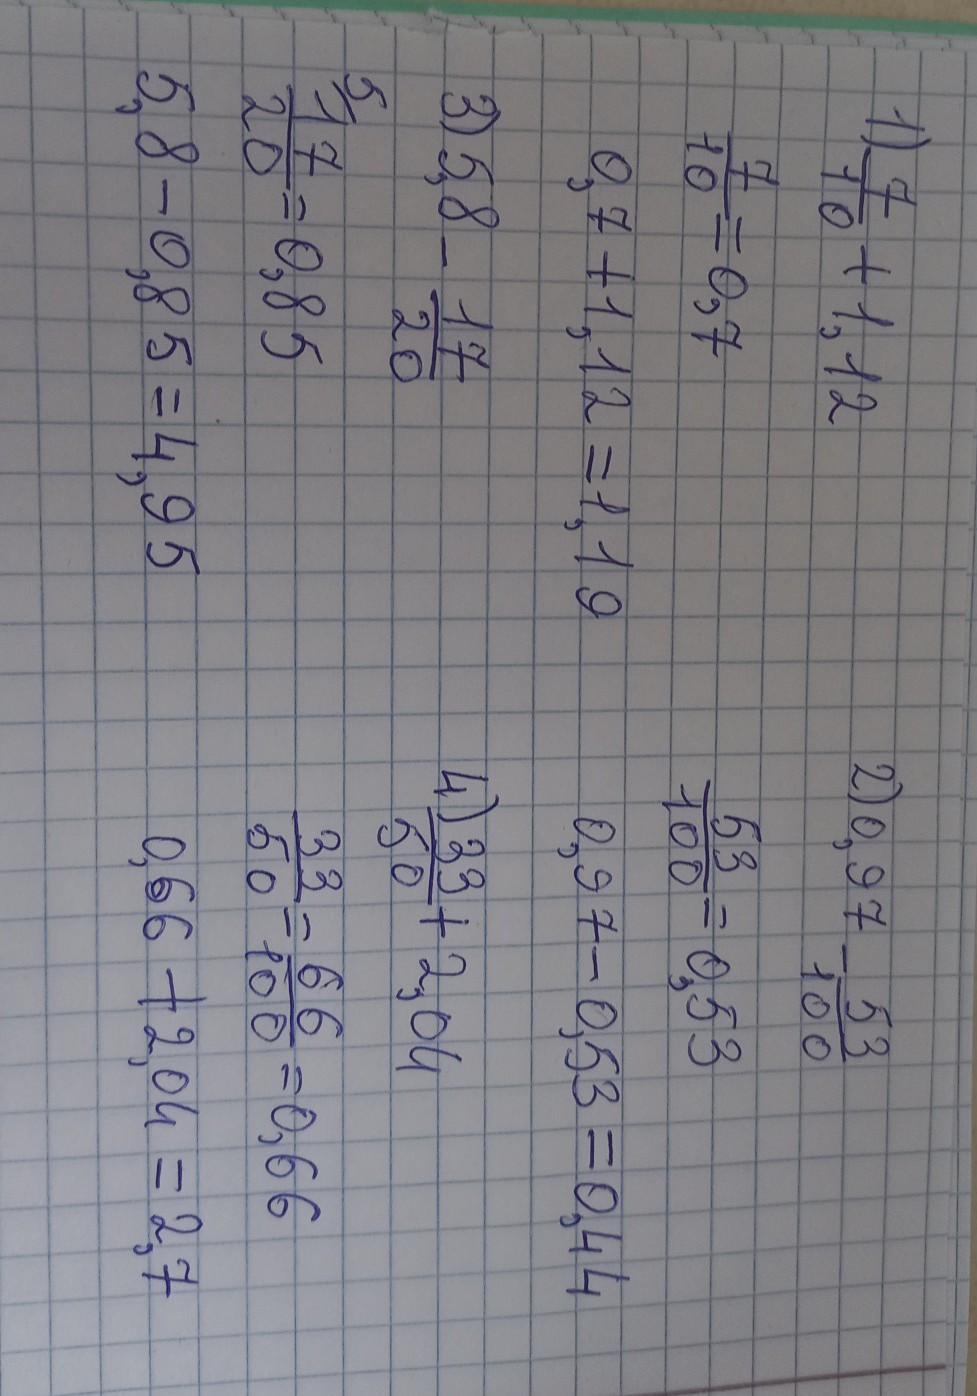 1) 7/10 + 1,12
7/10 = 0,7
0,7 + 1,12 = 1,19
2) 0,97 - 53/100
53/100 = 0,53
0,97 - 0,53 = 0,44
3) 5,8 - 17/20
5/ 17/20 = 0,85
5,8 - 0,85 = 4,95
4) 33/50 + 2,04
33/50 = 66/100 = 0,66
0,66 + 2,04 = 2,7